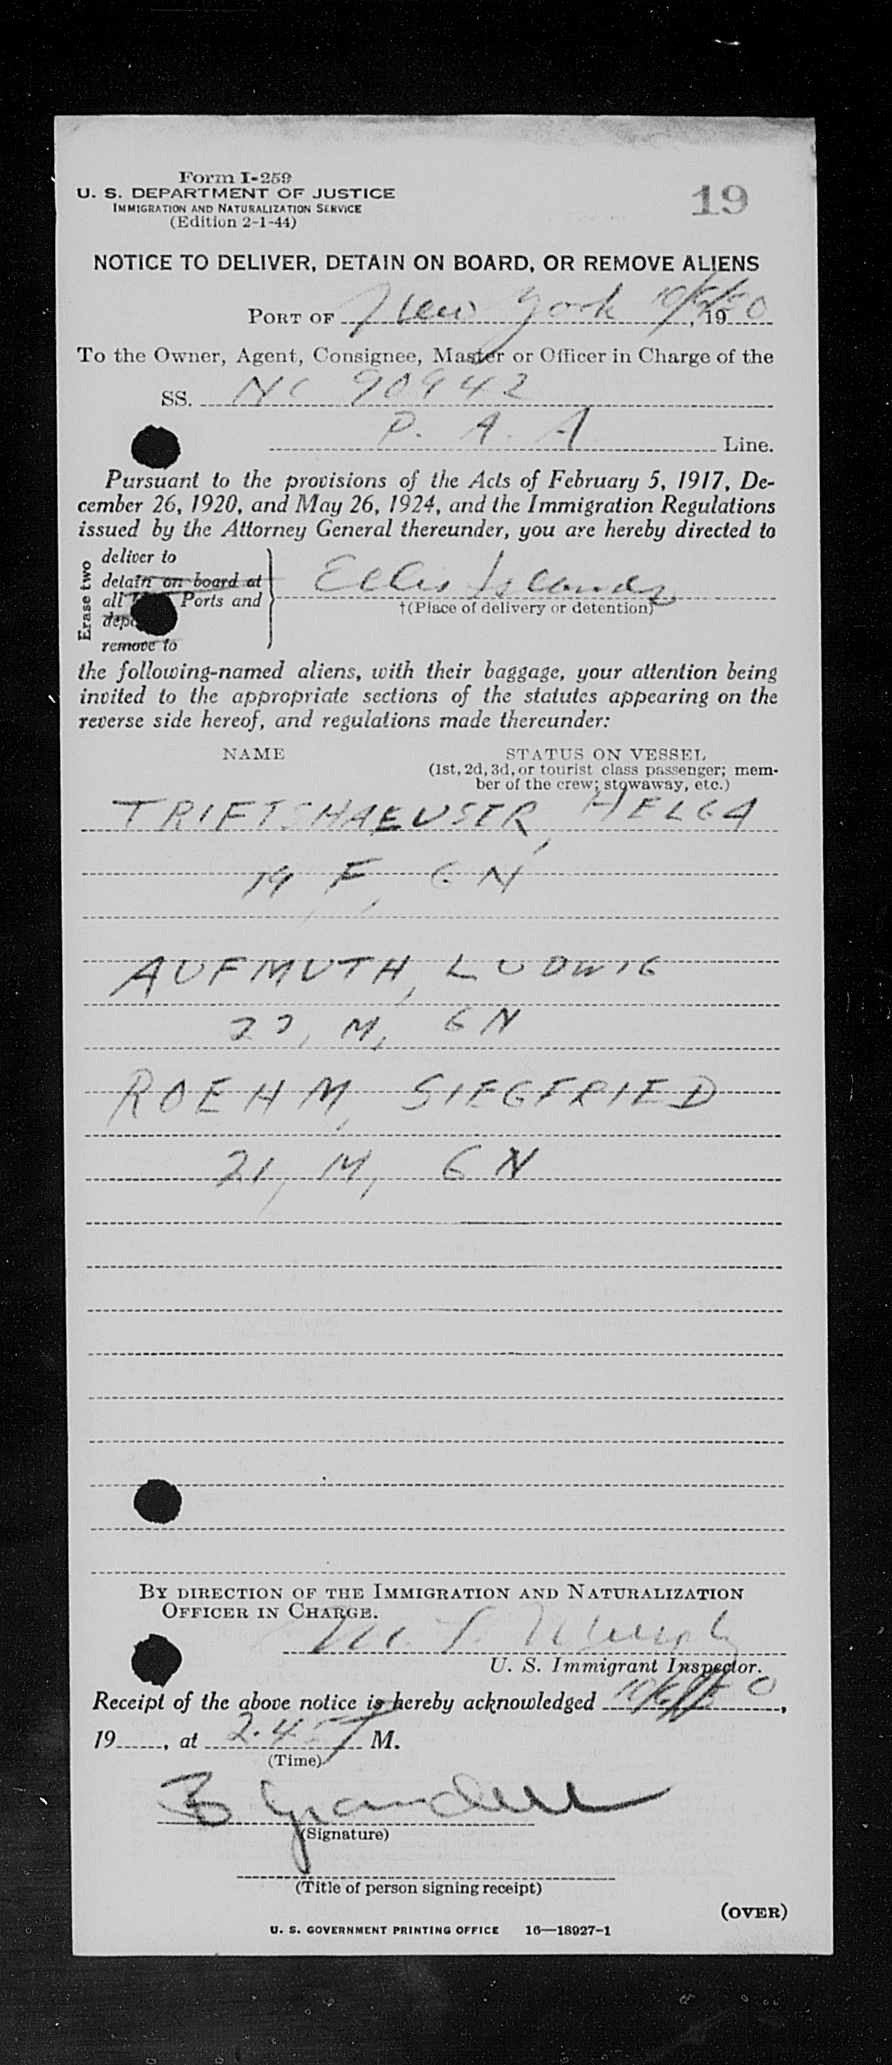 Form I-259
U. S. DEPARTMENT OF JUSTICE
IMMIGRATION AND NATURALIZATION SERVICE
(Edition 2-1-44)
19
NOTICE TO DELIVER, DETAIN ON BOARD, OR REMOVE ALIENS
PORT OF New York, 19
To the Owner, Agent, Consignee, Master or Officer in Charge of the
SS. NC 90942
P. A. A Line.
Pursuant to the provisions of the Acts of February 5, 1917, De-
cember 26, 1920, and May 26, 1924, and the Immigration Regulations
issued by the Attorney General thereunder, you are hereby directed to
Erase two
deliver to
detain on board at
all Ports and
remove to
Ellis Islands
†(Place of delivery or detention)
the following-named aliens, with their baggage, your attention being
invited to the appropriate sections of the statutes appearing on the
reverse side hereof, and regulations made thereunder:
NAME STATUS ON VESSEL
(1st, 2d, 3d, or tourist class passenger; mem-
ber of the crew; stowaway, etc.)
TRIFTSHAEUSER, HELGA
19, F, GN
AUFMUTH, LUDWIG
22, M, GN
ROEHM, SIEGFRIED
21, M, GN
BY DIRECTION OF THE IMMIGRATION AND NATURALIZATION
OFFICER IN CHARGE.
Murphy
U. S. Immigrant Inspector.
Receipt of the above notice is hereby acknowledged 10/6/50,
19, at 2.45 M.
(Time)
(Signature)
(Title of person signing receipt)
(OVER)
U. S. GOVERNMENT PRINTING OFFICE 16—18927-1